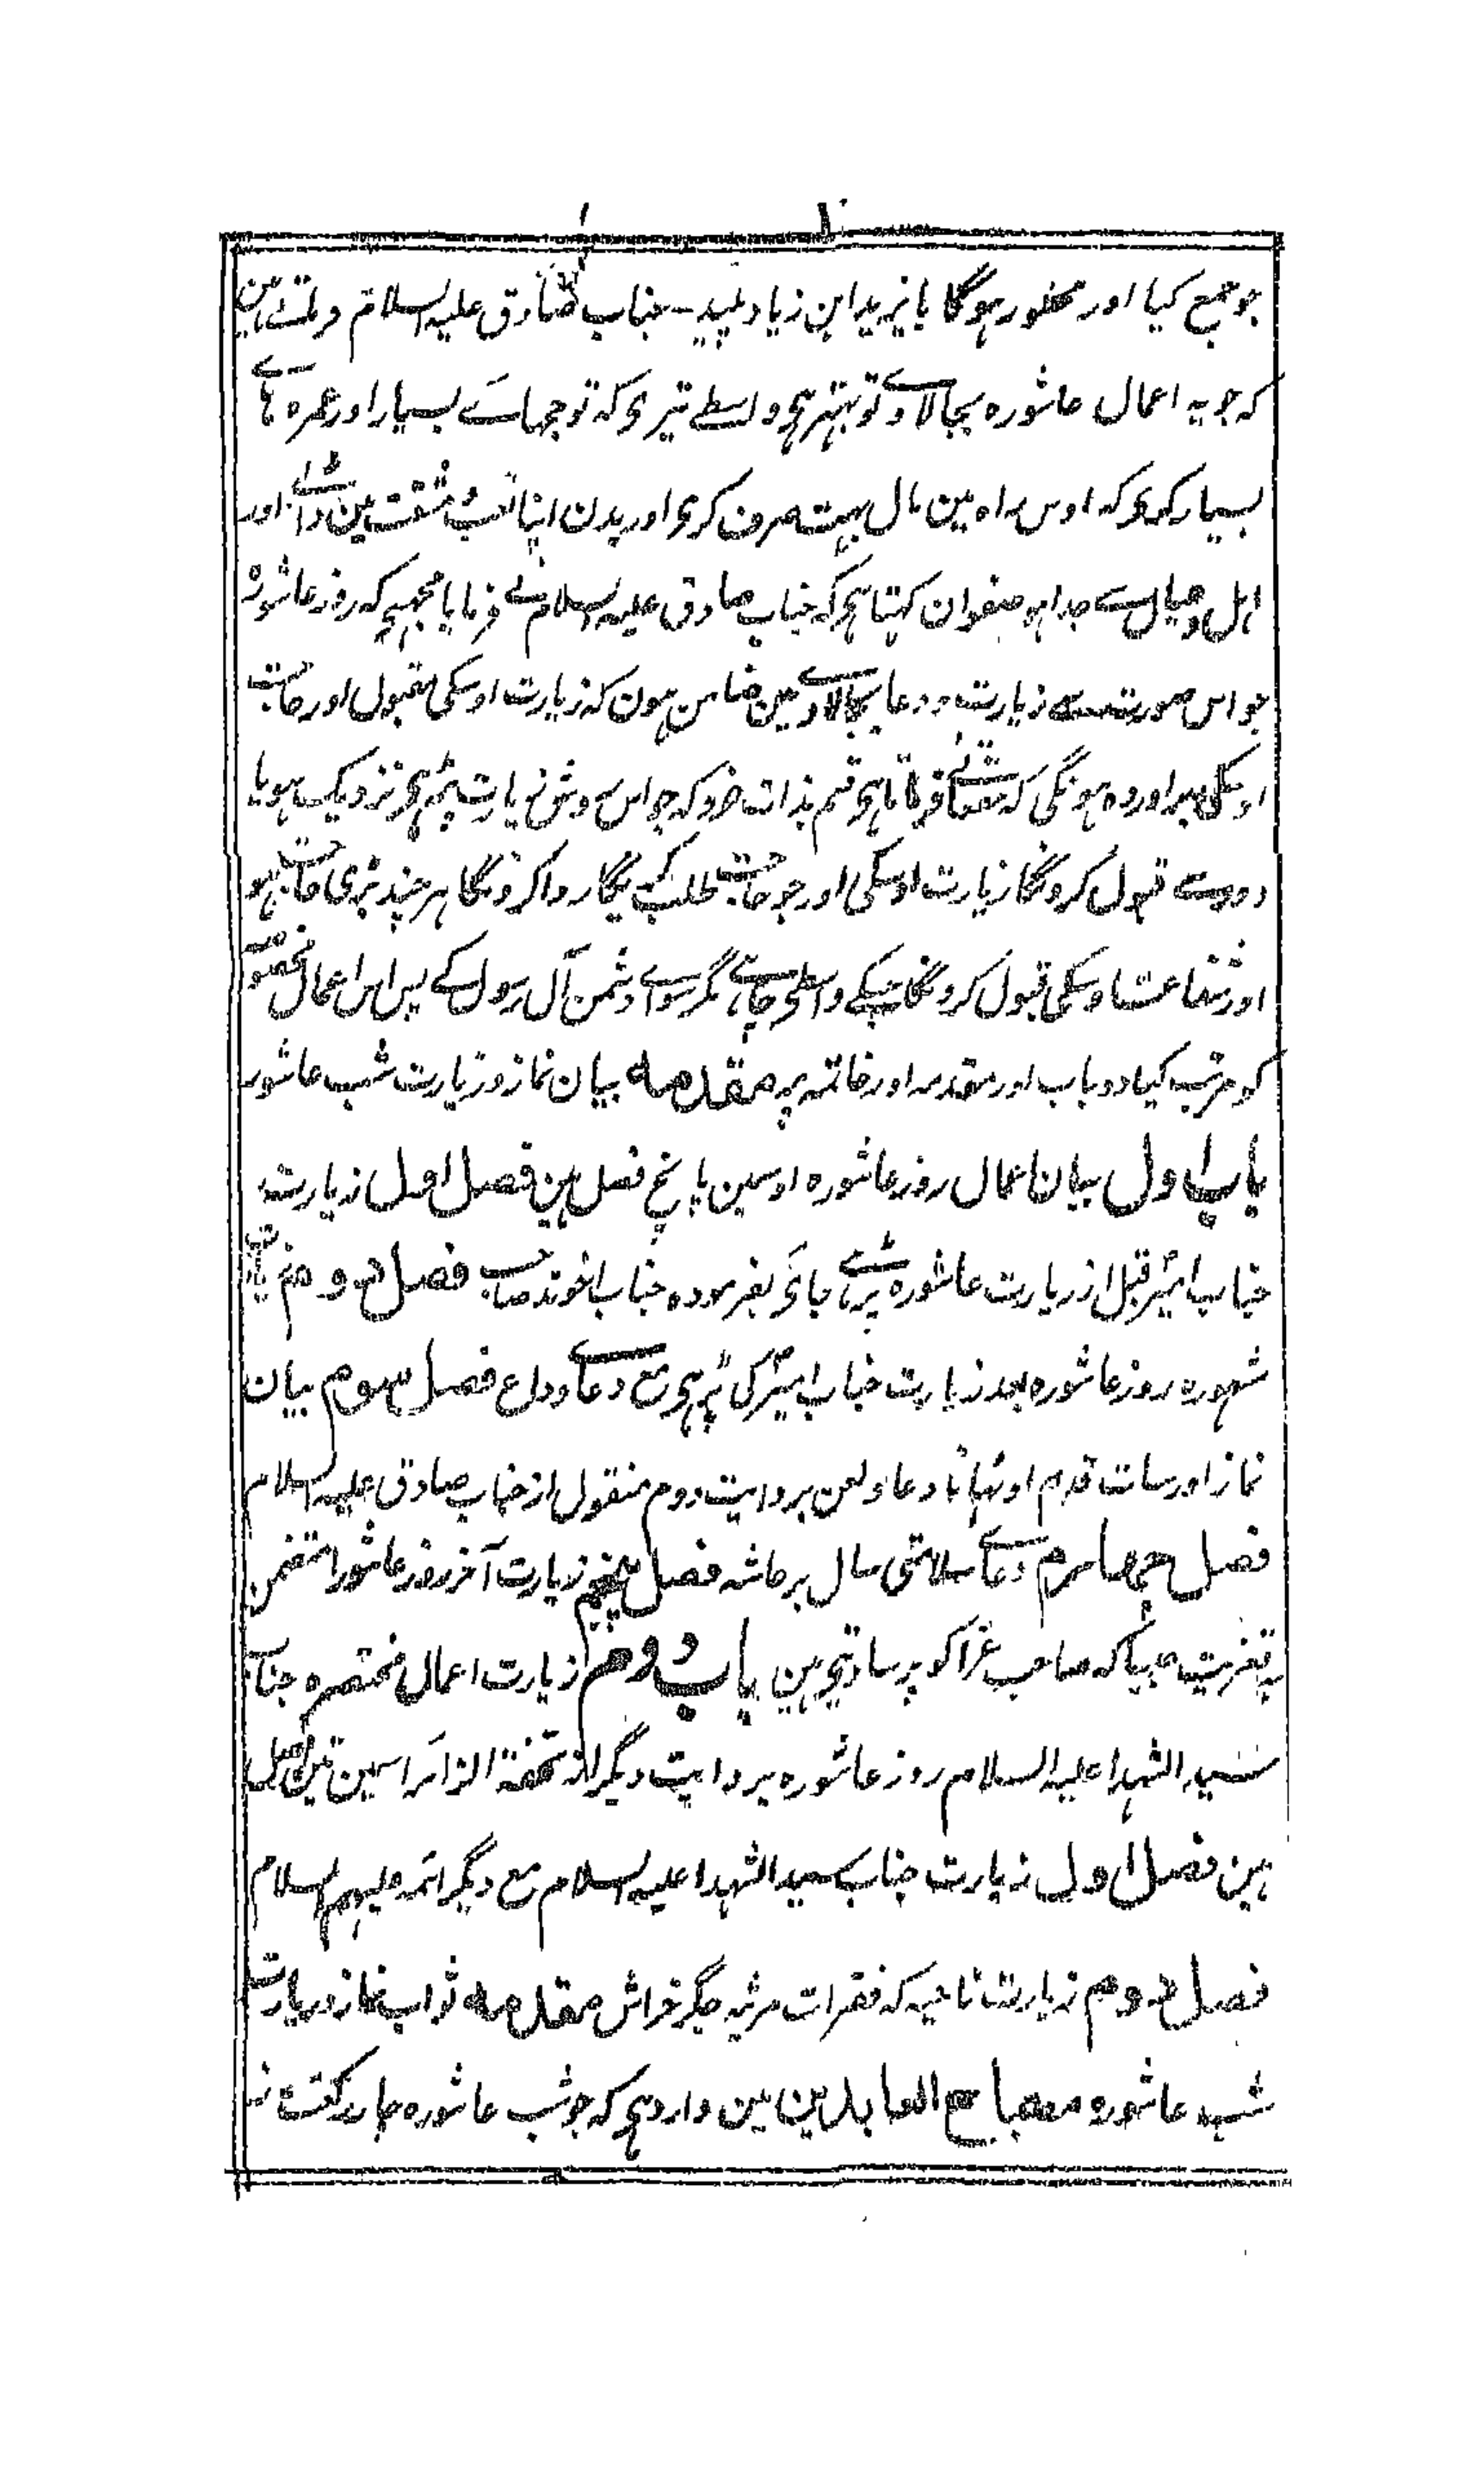 جو جمع کیا اور محشور ہوگا با یزید ابن زیاد پلید۔ جناب صادق علیہ السلام فرماتے ہین
کہ جو یہ اعمال عاشورہ بجالاوے تو بہتر ہی واسطے تیری کہ تو حجہاے بسیار اور عمرہ ہاے
بسیار کری کہ اوس راہ مین مال بہت صرف کری اور بدن اپنا تعب مشقت مین ڈالے اور
اہل وعیال سے جدا ہو صفوان کہتا ہی کہ جناب صادق علیہ السلام نے فرمایا مجہسے کہ روز عاشورہ
جو اس صورت سے زیارت و دعا بجالاوے مین ضامن ہون کہ زیارت اوسکی مقبول اور حاجت
اوسکی براوردہ ہونگی کہ حقتعالے فرماتا ہی قسم بذات خود کہ جو اس روش زیارت پڑہی نزدیک ہو یا
دور سے قبول کرونگا زیارت اوسکی اور جو حاجت طلب کریگا روا کرونگا ہر چند بڑی حاجت ہو
اور شفاعت اوسکی قبول کرونگا جسکے واسطے چاہے مگر سواے دشمن آل رسول کے پس اس اعمال مخصوصہ
کو مرتب کیا دو باب اور مقدمہ اور خاتمہ پر مقدمہ بیان نماز و زیارت شب عاشور
باب اول بیان اعمال روز عاشورہ اوسمین پانچ فصل ہین فصل اول زیارت
جناب امیر قبل از زیارت عاشورہ پڑہے جاے بفرمودہ جناب اخوند صاحب فصل دوم زیارت
شہورہ روز عاشورہ بعد زیارت جناب امیر کی پڑہی مع دعاے وداع فصل سوم بیان
نماز اور سات قدم اوٹہانا دعا و لعن بروایت دوم منقول از جناب صادق علیہ السلام
فصل چہارم دعاے سلامتی سال بر حاشہ فصل پنجم زیارت آخر روز عاشورا متضمن
بہ تعزیت جیساکہ صاحب عزا کو پرسا دیتی ہین باب دوم از یارت اعمال مختصرہ جناب
سید الشہدا علیہ السلام روز عاشورہ بروایت دیگر از تحفۃ الزائر اسمین تین فصل
ہین فصل اول زیارت جناب سید الشہدا علیہ السلام مع دیگر ائمہ علیہم السلام
فصل دوم زیارت ناحیہ کہ فقرات مرثیہ جگر خراش مقدمہ ثواب نماز و زیارت
شب عاشورہ مصباح العابدین مین وارد ہی کہ جو شب عاشورہ چار رکعت نہ